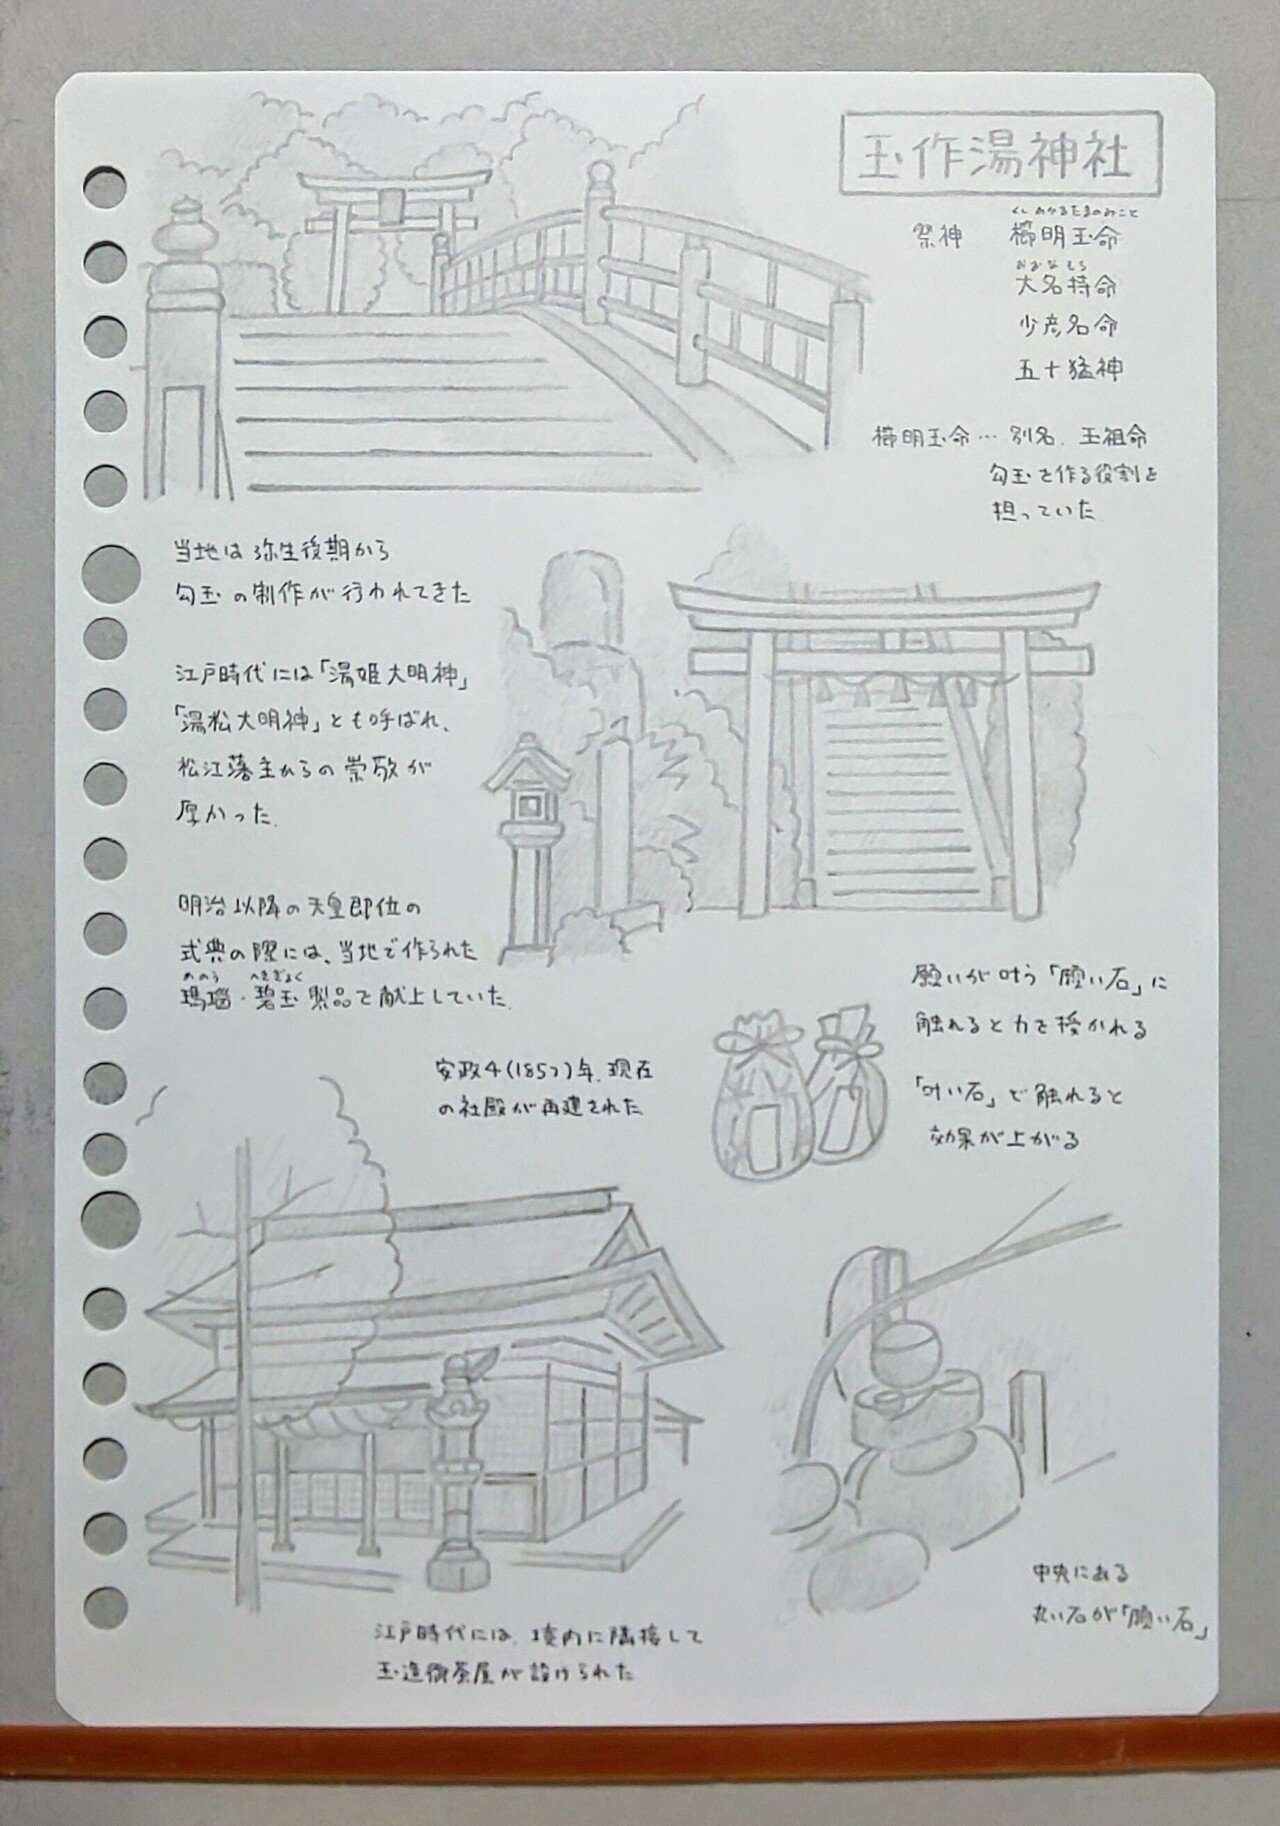 玉作湯神社
祭神 櫛明玉命
くしあかるたまのみこと
大名持命
おおなもち
少彦名命
五十猛神
櫛明玉命… 別名、玉祖命
勾玉を作る役割を
担っていた
当地は弥生後期から
勾玉の制作が行われてきた
江戸時代には「湯姫大明神」
「湯船大明神」とも呼ばれ、
松江藩主からの崇敬が
厚かった。
明治以降の天皇即位の
式典の際には、当地で作られた
瑪瑙・碧玉製品を献上していた。
めのう へきぎょく
願いが叶う「願い石」に
触れると力を授かれる
「叶い石」で触れると
効果が上がる
安政4(1857)年、現在
の社殿が再建された
中央にある
丸い石が「願い石」
江戸時代には、境内に隣接して
玉造御茶屋が設けられた